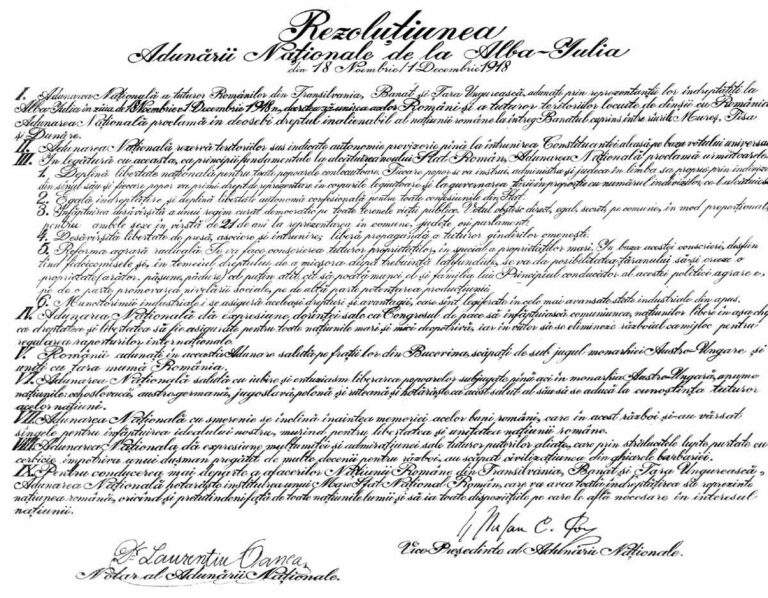 Rezoluțiunea
Adunării Naționale de la Alba-Iulia
din 18 Noembrie/1 Decembrie 1918
I. Adunarea Națională a tuturor Românilor din Transilvania, Banat și Țara Ungurească, adunați prin reprezentanții lor îndreptățiți la
Alba-Iulia în ziua de 18 Noembrie/1 Decembrie 1918, decretează unirea acelor Români și a tuturor teritoriilor locuite de dînșii cu România.
Adunarea Națională proclamă îndeosebi dreptul inalienabil al națiunii române la întreg Banatul cuprins între rîurile Mureș, Tisa
și Dunăre.
II. Adunarea Națională rezervă teritoriilor sus indicate autonomie provizorie pînă la întrunirea Constituantei aleasă pe baza votului universal.
III. În legătură cu aceasta, ca principii fundamentale la alcătuirea noului Stat Român, Adunarea Națională proclamă următoarele:
1. Deplină libertate națională pentru toate popoarele conlocuitoare. Fiecare popor se va instrui, administra și judeca în limba sa proprie prin indivizi
din sînul său și fiecare popor va primi drept de reprezentare în corpurile legiuitoare și la guvernarea țării în proporție cu numărul indivizilor ce-l alcătuiesc.
2. Egală îndreptățire și deplină libertate autonomă confesională pentru toate confesiunile din Stat.
3. Înfăptuirea desăvîrșită a unui regim curat democratic pe toate terenele vieții publice. Votul obștesc, direct, egal, secret, pe comune, în mod proporțional,
pentru ambele sexe, în vîrstă de 21 de ani la reprezentarea în comune, județe ori parlament.
4. Desăvîrșită libertate de presă, asociere și întrunire; liberă propagandă a tuturor gîndurilor omenești.
5. Reforma agrară radicală. Se va face conscrierea tuturor proprietăților, în special a proprietăților mari. În baza acestei conscrieri, desfiin-
țînd fideicomisele și, în temeiul dreptului de a micșora după trebuință latifundiile, se va da posibilitatea țăranului să-și creeze o
proprietate (arător, pășune, pădure) cel puțin atît cît să poată munci el și familia lui. Principiul conducător al acestei politici agrare e,
pe de o parte promovarea nivelării sociale, pe de altă parte potențarea producțiunii.
6. Muncitorimii industriale i se asigură aceleași drepturi și avantagii, care sînt legiferate în cele mai avansate state industriale din apus.
IV. Adunarea Națională dă expresiune dorinței sale ca Congresul de pace să înfăptuiască comuniunea națiunilor libere în așa chip,
ca dreptatea și libertatea să fie asigurate pentru toate națiunile mari și mici deopotrivă, iar în viitor să se elimineze războiul ca mijloc pentru
regularea raporturilor internaționale.
V. Românii adunați în această Adunare salută pe frații lor din Bucovina, scăpați de sub jugul monarhiei Austro-Ungare și
uniți cu țara mumă România.
VI. Adunarea Națională salută cu iubire și entuziasm liberarea popoarelor subjugate pînă aci în monarhia Austro-Ungară, anume
națiunile: cehoslovacă, austro-germană, jugoslavă, polonă și ruteană și hotărăște ca acest salut al său să se aducă la cunoștința tuturor
acelor națiuni.
VII. Adunarea Națională cu smerenie se înclină înaintea memoriei acelor bravi români, care în acest război și-au vărsat
sîngele pentru înfăptuirea idealului nostru, murind pentru libertatea și unitatea națiunii române.
VIII. Adunarea Națională dă expresiune mulțumirii și admirațiunii sale tuturor puterilor aliate, care prin strălucitele lupte purtate cu
cerbicie împotriva unui dușman pregătit de multe decenii pentru război, au scăpat civilizațiunea din ghiarele barbariei.
IX. Pentru conducerea mai departe a afacerilor Națiunii Române din Transilvania, Banat și Țara Ungurească,
Adunarea Națională hotărăște instituirea unui Mare Sfat Național Român, care va avea toată îndreptățirea să reprezinte
națiunea română, oricînd și pretutindeni față de toate națiunile lumii și să ia toate dispozițiile pe care le află necesare în interesul
națiunii.
Dr. Laurențiu Oanea
Notar al Adunării Naționale.
Vice Președinte al Adunării Naționale.